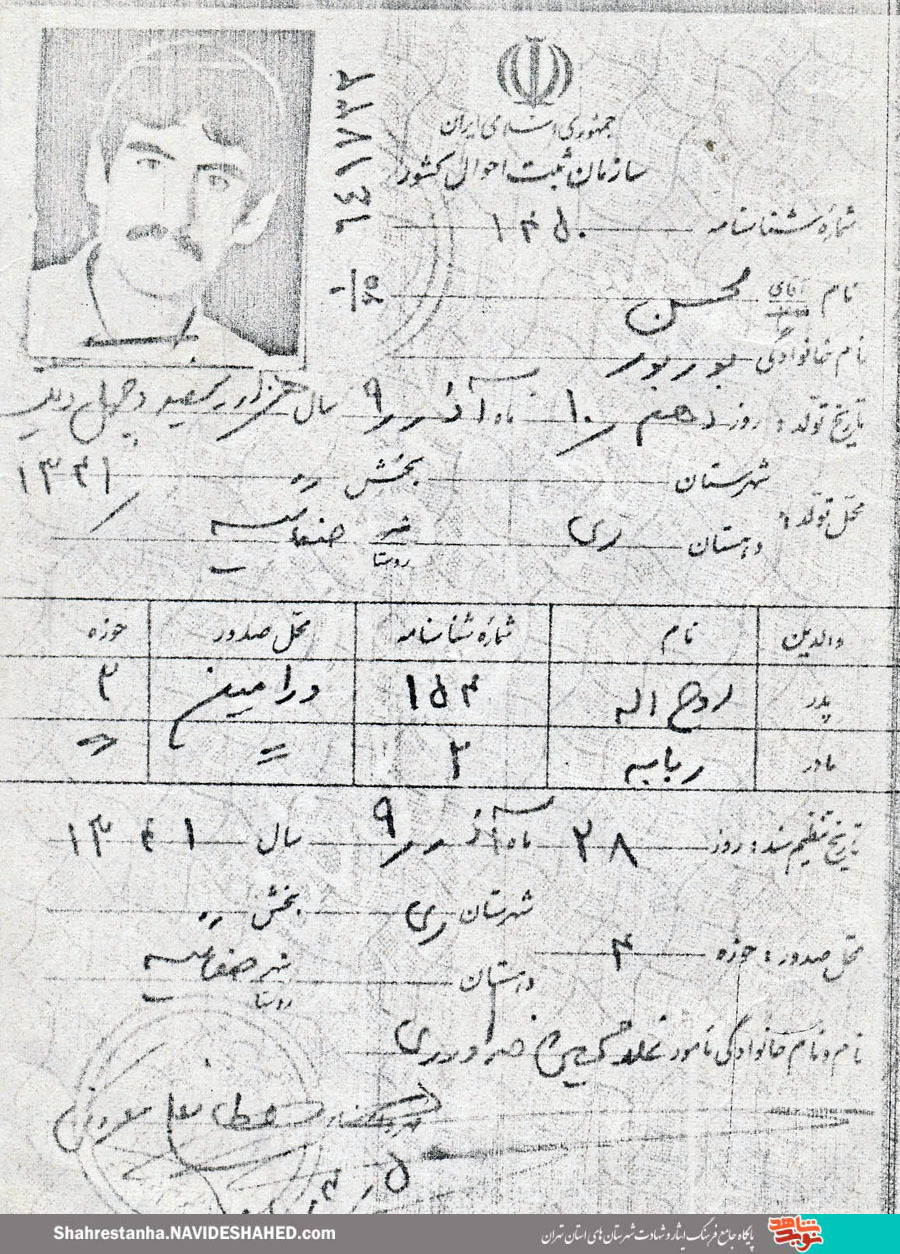 جمهوری اسلامی ایران
سازمان ثبت احوال کشور
۲۳۸۱۸۳
شماره شناسنامه ۱۴۵۰
نام آقای محسن
نام خانوادگی بوربور
تاریخ تولد: روز دهم ۱۰ ماه آذر ۹ سال هزار و سیصد و چهل و یک
۱۳۴۱
محل تولد: شهرستان بخش
دهستان ری شهر روستا
والدین نام شماره شناسنامه محل صدور حوزه
پدر روح اله ۱۵۴ ورامین ۲
مادر ربابه ۳ " "
تاریخ تنظیم سند: روز ۲۸ ماه آذر ۹ سال ۱۳۴۱
محل صدور: حوزه ۴ شهرستان ری بخش
دهستان شهر روستا
نام و نام خانوادگی مامور غلامحسین
Shahrestanha.NAVIDESHAHED.com
پایگاه جامع فرهنگ ایثار و شهادت شهرستان های استان تهران
نوید شاهد